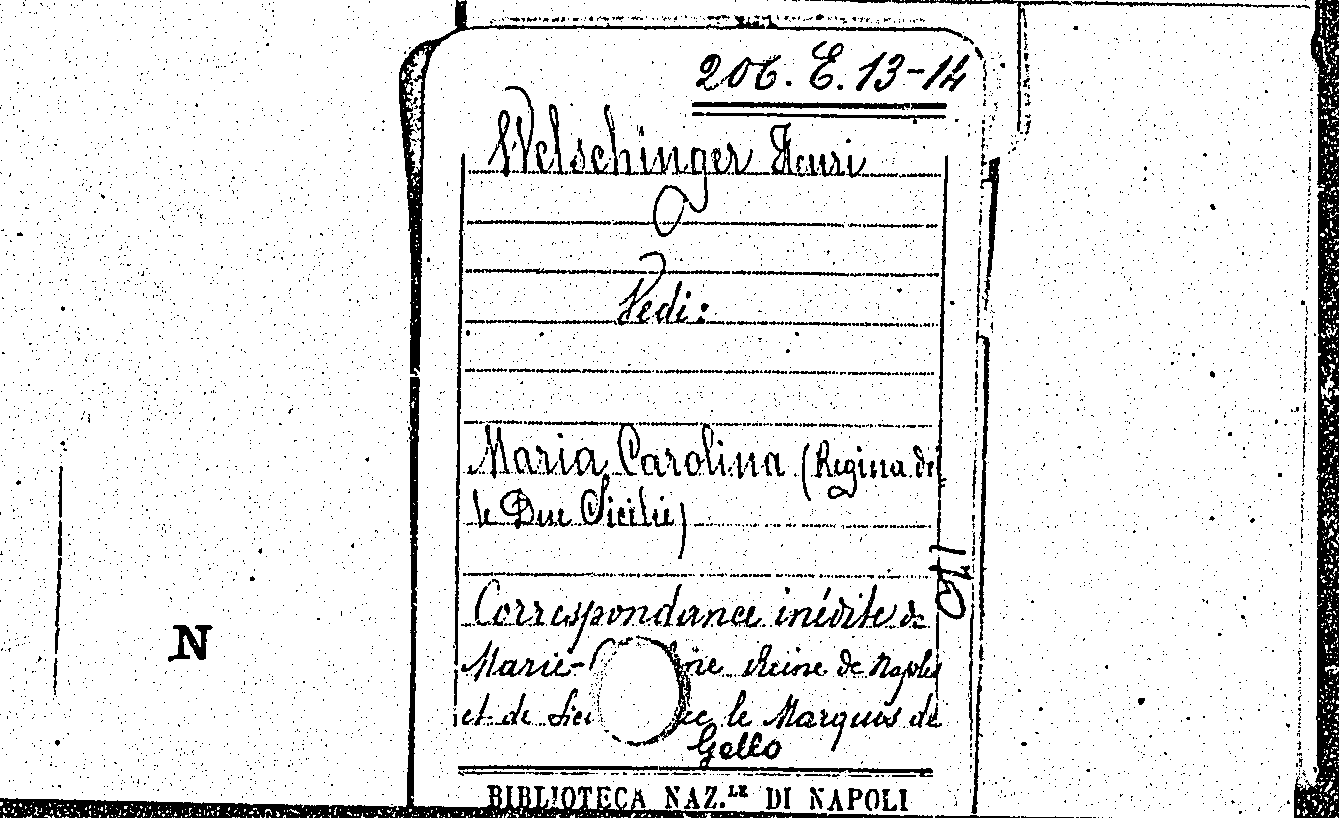 206. E. 13-14
Welschinger Henri
Vedi:
Maria Carolina (Regina del
le Due Sicilie)
140
Correspondance inédite de
Marie- ne Reine de Naples
et de le Marquis de
Gallo
N
BIBLIOTECA NAZ.LE DI NAPOLI